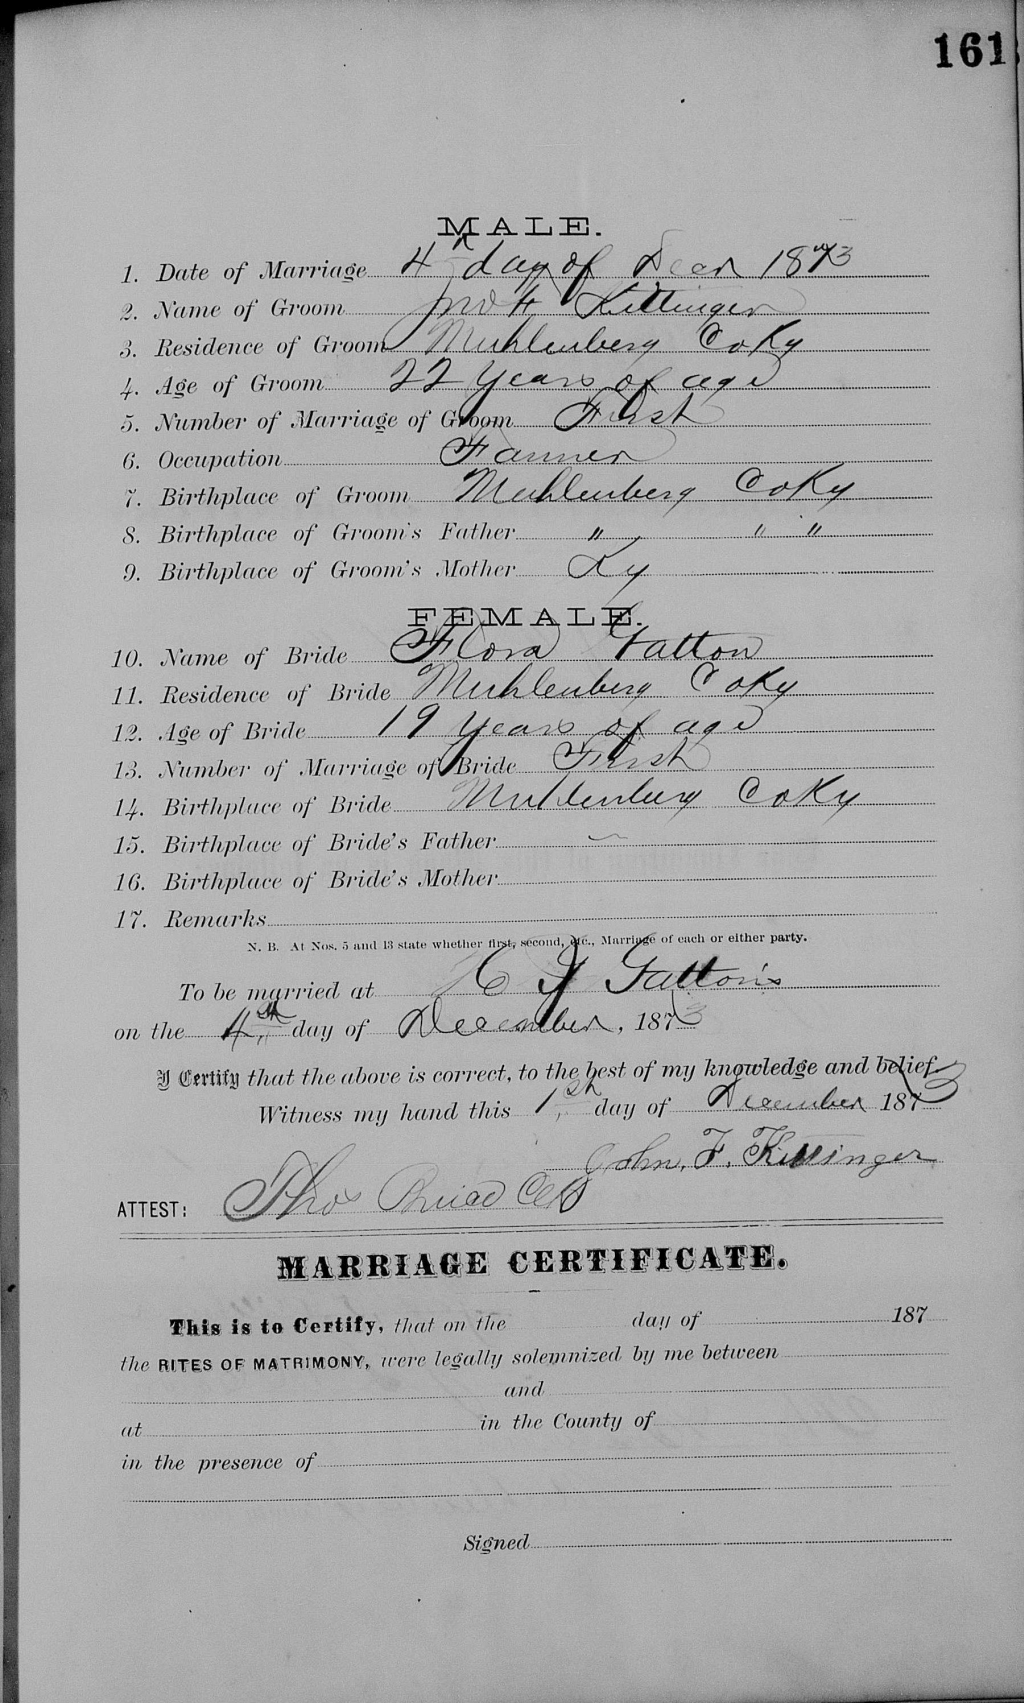 161
MALE.
1. Date of Marriage 4th day of Decr 1873
2. Name of Groom Kittinger
3. Residence of Groom Muhlenberg Co Ky
4. Age of Groom 22 Years of age
5. Number of Marriage of Groom First
6. Occupation Farmer
7. Birthplace of Groom Muhlenberg Co Ky
8. Birthplace of Groom's Father " " "
9. Birthplace of Groom's Mother Ky
FEMALE.
10. Name of Bride Flora Gatton
11. Residence of Bride Muhlenberg Co Ky
12. Age of Bride 19 Years of age
13. Number of Marriage of Bride First
14. Birthplace of Bride Muhlenberg Co Ky
15. Birthplace of Bride's Father
16. Birthplace of Bride's Mother
17. Remarks
N. B. At Nos. 5 and 13 state whether first, second, etc., Marriage of each or either party.
To be married at Gatton's
on the 4th day of December, 1873
I Certify that the above is correct, to the best of my knowledge and belief
Witness my hand this 1st day of December 1873
John. F. Kittinger
ATTEST: Thos Clk
MARRIAGE CERTIFICATE.
This is to Certify, that on the day of 187
the RITES OF MATRIMONY, were legally solemnized by me between
and
at in the County of
in the presence of
Signed